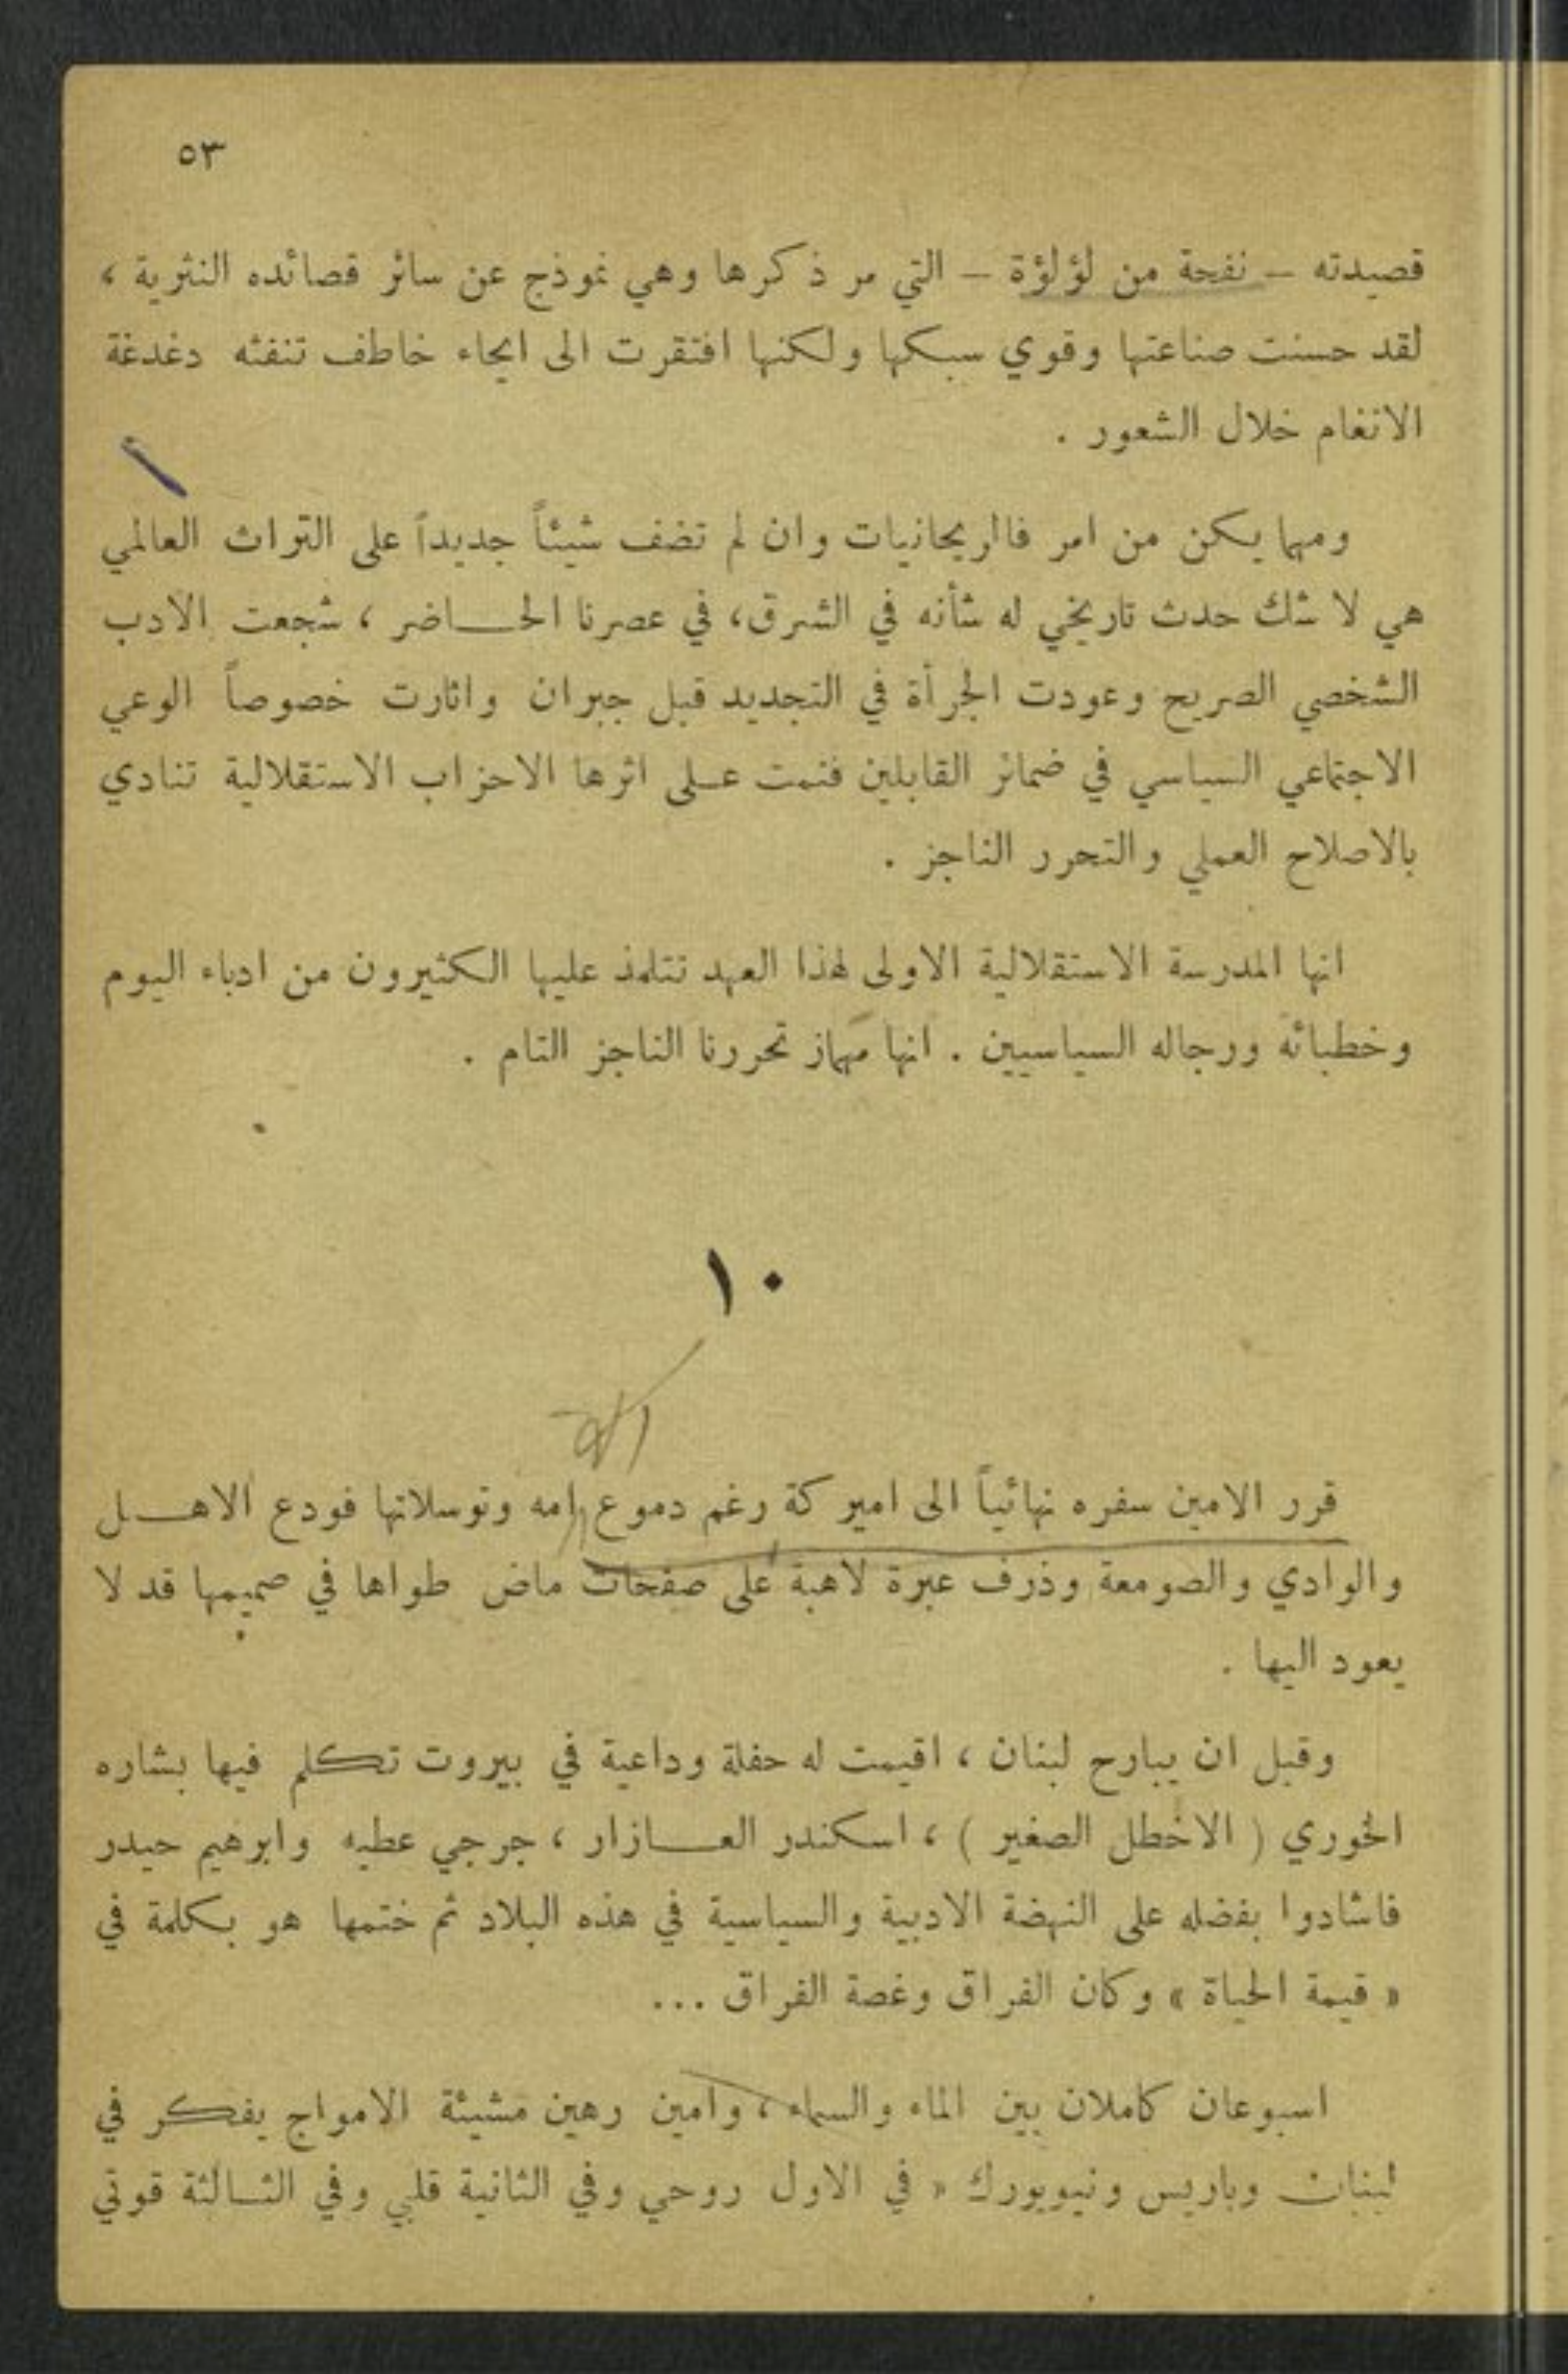 ٥٣
قصيدته – نفحة من لؤلؤة – التي مر ذكرها وهي نموذج عن سائر قصائده النثرية ،
لقد حسنت صناعتها وقوي سبكها ولكنها افتقرت الى ايحاء خاطف تنفثه دغدغة
الانغام خلال الشعور .
ومهما يكن من امر فالريحانيات وان لم تضف شيئاً جديداً على التراث العالمي
هي لا شك حدث تاريخي له شأنه في الشرق، في عصرنا الحـاضر ، شجعت الادب
الشخصي الصريح وعودت الجرأة في التجديد قبل جبران واثارت خصوصاً الوعي
الاجتماعي السياسي في ضمائر القابلين فنمت عـلى اثرها الاحزاب الاستقلالية تنادي
بالاصلاح العملي والتحرر الناجز .
انها المدرسة الاستقلالية الاولى لهذا العهد تتلمذ عليها الكثيرون من ادباء اليوم
وخطبائه ورجاله السياسيين . انها مهماز تحررنا الناجز التام .
١٠
قرر الامين سفره نهائياً الى اميركة رغم دموع امه وتوسلاتها فودع الاهـل
والوادي والصومعة وذرف عبرة لاهبة على صفحات ماض طواها في صميمها قد لا
يعود اليها .
وقبل ان يبارح لبنان ، اقيمت له حفلة وداعية في بيروت تكلم فيها بشاره
الخوري ( الاخطل الصغير ) ، اسكندر العـازار ، جرجي عطيه وابرهيم حيدر
فاشادوا بفضله على النهضة الادبية والسياسية في هذه البلاد ثم ختمها هو بكلمة في
« قيمة الحياة » وكان الفراق وغصة الفراق ...
اسبوعان كاملان بين الماء والسماء ، وامين رهين مشيئة الامواج يفكر في
لبنان وباريس ونيويورك « في الاول روحي وفي الثانية قلبي وفي الثـالثة قوتي